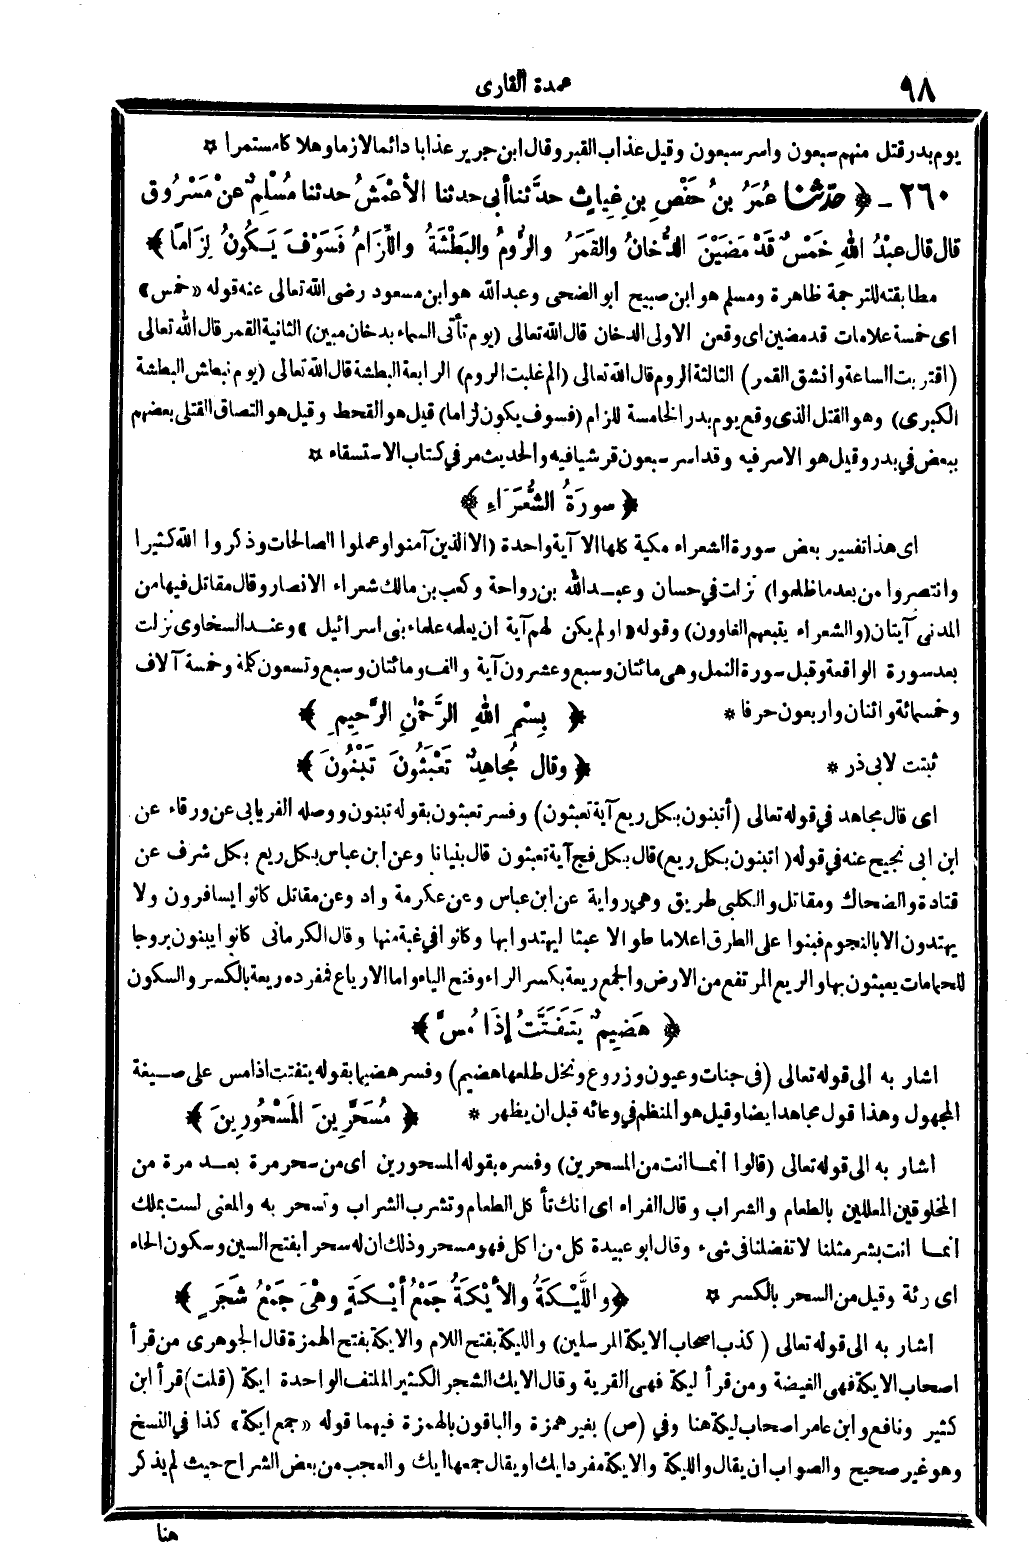 ٩٨
عمدة القارى
يوم بدر قتل منهم سبعون واسر سبعون وقيل عذاب القبر وقال ابن جرير عذابا دائما لازما وهلاكا مستمرا ۞
٢٦٠ ـ ﴿ حَدَّثَنا عُمَرُ بنُ حَفْصِ بنِ غِياثٍ حدَّثنا أبي حدثنا الأعْمَشُ حدثنا مُسْلِمٌ عنْ مَسْرُوقٍ
قال قال عبْدُ اللهِ خَمْسٌ قَدْ مَضَيْنَ الدُّخانُ والقَمَرُ والرُّومُ والبَطْشَةُ واللِّزَامُ فَسَوْفَ يَكُونُ لِزَامًا ﴾
مطابقته للترجمة ظاهرة ومسلم هو ابن صبيح ابو الضحى وعبد الله هو ابن مسعود رضى الله تعالى عنه قوله «خمس»
اى خمسة علامات قد مضين اى وقعن الاولى الدخان قال الله تعالى (يوم تأتى السماء بدخان مبين) الثانية القمر قال الله تعالى
(اقتربت الساعة وانشق القمر) الثالثة الروم قال الله تعالى (الم غلبت الروم) الرابعة البطشة قال الله تعالى (يوم نبطش البطشة
الكبرى) وهو القتل الذى وقع يوم بدر الخامسة للزام (فسوف يكون لزاما) قيل هو القحط وقيل هو التصاق القتلى بعضهم
ببعض في بدر وقيل هو الاسر فيه وقد اسر سبعون قرشيا فيه والحديث مر في كتاب الاستسقاء ۞
﴿ سورَةُ الشُّعَرَاءِ ﴾
اى هذا تفسير بعض سورة الشعراء مكية كلها الا آية واحدة (الا الذين آمنوا وعملوا الصالحات وذكروا الله كثيرا
وانتصروا من بعد ما ظلموا) نزلت في حسان وعبد الله بن رواحة وكعب بن مالك شعراء الانصار وقال مقاتل فيها من
المدنى آيتان (والشعراء يتبعهم الغاوون) وقوله «او لم يكن لهم آية ان يعلمه علماء بنى اسرائيل» وعند السخاوى نزلت
بعد سورة الواقعة وقبل سورة النمل وهى مائتان وسبع وعشرون آية والف ومائتان وسبع وتسعون كلمة وخمسة آلاف
وخمسمائة واثنان واربعون حرفا * ﴿ بِسْمِ اللهِ الرَّحْمٰنِ الرَّحِيمِ ﴾
ثبتت لابى ذر * ﴿ وقال مُجاهِدٌ تَعْبَثُونَ تَبْنُونَ ﴾
اى قال مجاهد في قوله تعالى (أتبنون بكل ريع آية تعبثون) وفسر تعبثون بقوله تبنون ووصله الفريابى عن ورقاء عن
ابن ابى نجيح عنه في قوله (اتبنون بكل ريع) قال بكل فج آية تعبثون قال بنيانا وعن ابن عباس بكل ريع بكل شرف عن
قتادة والضحاك ومقاتل والكلبى طريق وهي رواية عن ابن عباس وعن عكرمة واد وعن مقاتل كانوا يسافرون ولا
يهتدون الا بالنجوم فبنوا على الطرق اعلاما طوالا عبثا ليهتدوا بها وكانوا في غبة منها وقال الكرمانى كانوا يبنون بروجا
للحمامات يعبثون بها والريع المرتفع من الارض والجمع ريعة بكسر الراء وفتح الياء واما الارياع فمفرده ريعة بالكسر والسكون
﴿ هَضِيمٌ يَتَفَتَّتُ إذَا مُسَّ ﴾
اشار به الى قوله تعالى (فى جنات وعيون وزروع ونخل طلعها هضيم) وفسر هضيما بقوله يتفتت اذا مس على صيغة
المجهول وهذا قول مجاهد ايضا وقيل هو المنظم في وعائه قبل ان يظهر * ﴿ مُسَحَّرِينَ المَسْحُورِينَ ﴾
اشار به الى قوله تعالى (قالوا انما انت من المسحرين) وفسره بقوله المسحورين اى من سحر مرة بعد مرة من
المخلوقين المعللين بالطعام والشراب وقال الفراء اى انك تأكل الطعام وتشرب الشراب وتسحر به والمعنى لست بملك
انما انت بشر مثلنا لا تفضلنا فى شىء وقال ابو عبيدة كل من اكل فهو مسحر وذلك ان له سحرا بفتح السين وسكون الحاء
اى رئة وقيل من السحر بالكسر ۞ ﴿ واللَّيْكَةُ والأيْكَةُ جَمْعُ أيْكَةٍ وهْىَ جَمْعُ شَجَرٍ ﴾
اشار به الى قوله تعالى (كذب اصحاب الايكة المرسلين) والليكة بفتح اللام والايكة بفتح الهمزة قال الجوهرى من قرأ
اصحاب الايكة فهى الغيضة ومن قرأ ليكة فهى القرية وقال الايك الشجر الكثير الملتف الواحدة ايكة (قلت) قرأ ابن
كثير ونافع وابن عامر اصحاب ليكة هنا وفي (ص) بغير همزة والباقون بالهمزة فيهما قوله «جمع ايكة» كذا في النسخ
وهو غير صحيح والصواب ان يقال والليكة والايكة مفرد ايك او يقال جمعها أيك والعجب من بعض الشراح حيث لم يذكر
هنا